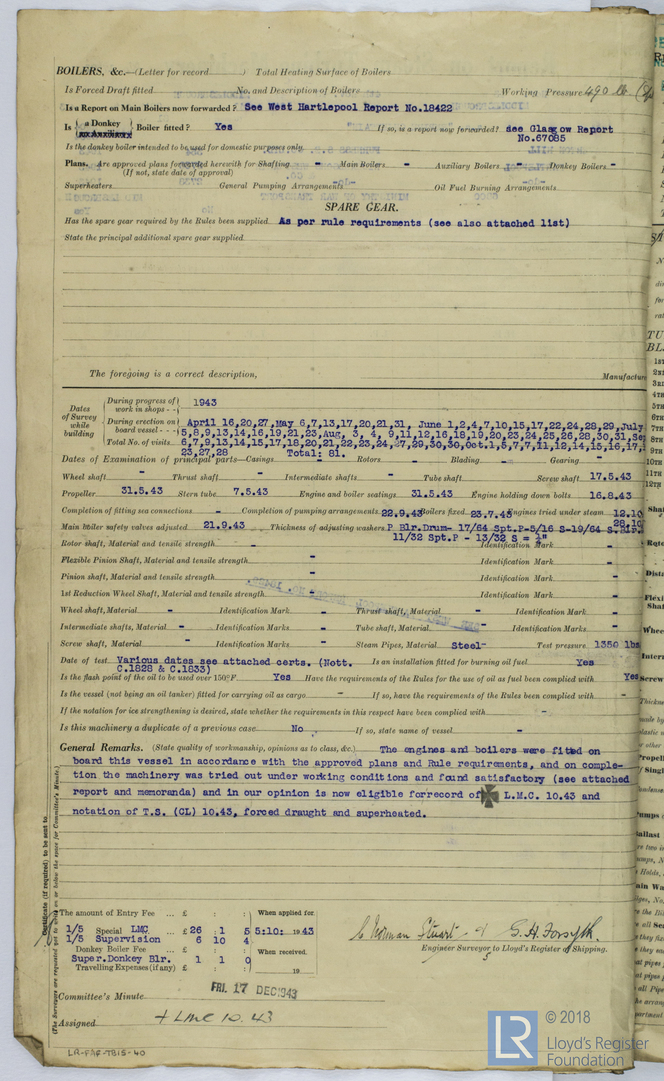 BOILERS, &c.—(Letter for record ) Total Heating Surface of Boilers
Is Forced Draft fitted No. and Description of Boilers Working Pressure 490 lb.
Is a Report on Main Boilers now forwarded? See West Hartlepool Report No.18422
Is { a Donkey Boiler fitted? Yes If so, is a report now forwarded? see Glasgow Report
No.67085
Is the donkey boiler intended to be used for domestic purposes only
Plans. Are approved plans forwarded herewith for Shafting - Main Boilers - Auxiliary Boilers - Donkey Boilers -
(If not, state date of approval)
Superheaters General Pumping Arrangements Oil Fuel Burning Arrangements
SPARE GEAR.
Has the spare gear required by the Rules been supplied As per rule requirements (see also attached list)
State the principal additional spare gear supplied
The foregoing is a correct description,
Manufactur
Dates of Survey while building
During progress of work in shops - - 1943
During erection on board vessel - - - April 16,20,27,May 6,7,13,17,20,21,31, June 1,2,4,7,10,15,17,22,24,28,29,July
5,8,9,13,14,16,19,21,23,Aug, 3, 4, 9,11,12,16,18,19,20,23,24,25,26,28,30,31,Se
Total No. of visits 6,7,9,13,14,15,17,18,20,21,22,23,24,27,29,30,Oct.1,5,7,7,11,12,14,15,16,17,
23,27,28 Total: 81.
Dates of Examination of principal parts—Casings - Rotors - Blading - Gearing -
Wheel shaft - Thrust shaft - Intermediate shafts - Tube shaft - Screw shaft 17.5.43
Propeller 31.5.43 Stern tube 7.5.43 Engine and boiler seatings 31.5.43 Engine holding down bolts 16.8.43
Completion of fitting sea connections - Completion of pumping arrangements 22.9.43 Boilers fixed 23.7.43 Engines tried under steam 12.10
28.10
Main boiler safety valves adjusted 21.9.43 Thickness of adjusting washers P Blr.Drum- 17/64 Spt.P-5/16 S-19/64 S.Blr.
11/32 Spt.P - 13/32 S = ½"
Rotor shaft, Material and tensile strength - Identification Mark -
Flexible Pinion Shaft, Material and tensile strength - Identification Mark -
Pinion shaft, Material and tensile strength - Identification Mark -
1st Reduction Wheel Shaft, Material and tensile strength - Identification Mark -
Wheel shaft, Material - Identification Mark - Thrust shaft, Material - Identification Mark -
Intermediate shafts, Material - Identification Marks - Tube shaft, Material - Identification Marks -
Screw shaft, Material - Identification Marks - Steam Pipes, Material Steel- Test pressure 1350 lbs
Date of test Various dates see attached certs. (Nott. Is an installation fitted for burning oil fuel Yes
C.1828 & C.1833)
Is the flash point of the oil to be used over 150°F. Yes Have the requirements of the Rules for the use of oil as fuel been complied with Yes
Is the vessel (not being an oil tanker) fitted for carrying oil as cargo - If so, have the requirements of the Rules been complied with -
If the notation for ice strengthening is desired, state whether the requirements in this respect have been complied with -
Is this machinery a duplicate of a previous case No If so, state name of vessel -
General Remarks. (State quality of workmanship, opinions as to class, &c.) The engines and boilers were fitted on
board this vessel in accordance with the approved plans and Rule requirements, and on comple-
tion the machinery was tried out under working conditions and found satisfactory (see attached
report and memoranda) and in our opinion is now eligible for record of ✠ L.M.C. 10.43 and
notation of T.S. (CL) 10.43, forced draught and superheated.
Certificate (if required) to be sent to
(The Surveyors are requested not to write on or below the space for Committee's Minute.)
The amount of Entry Fee ... £ : : When applied for
1/5 Special LMC ... £ 26 : 1 5 5:10: 1943
1/5 Supervision 6 10 4
Donkey Boiler Fee ... £ : : When received,
Super.Donkey Blr. 1 1 0
Travelling Expenses (if any) £ : : 19
C Norman Stuart & G.H. Forsyth.
Engineer Surveyors to Lloyd's Register of Shipping.
Committee's Minute FRI. 17 DEC 1943
Assigned + LMC 10.43
LR-FAF-TB15-40
LR
© 2018
Lloyd's Register
Foundation